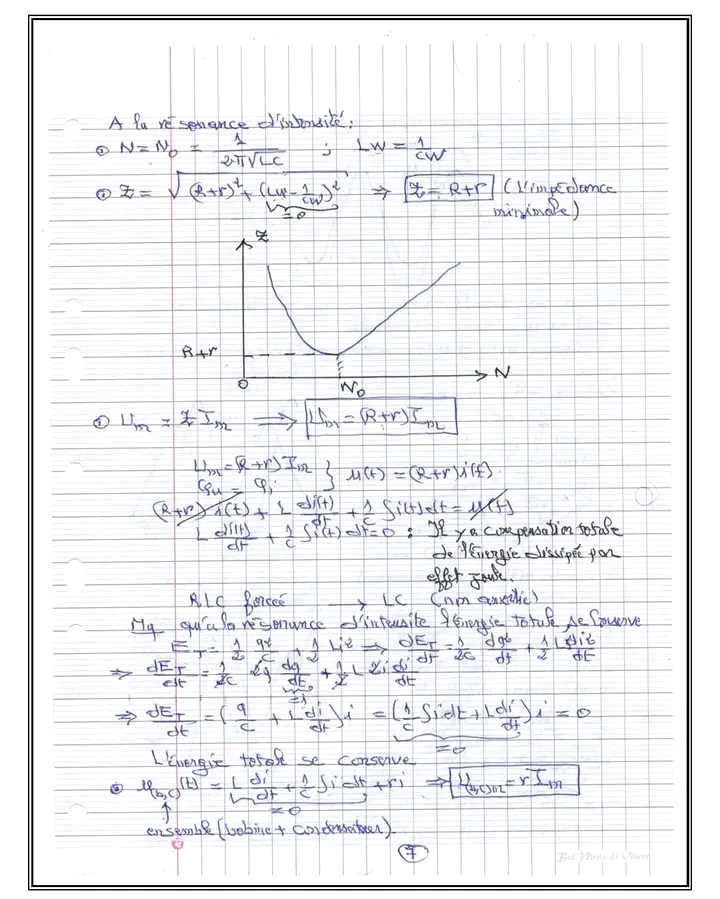 A la résonance d'intensité:
① N = N₀ = 1/(2π√LC) ; Lw = 1/(cw)
② Z = √((R+r)² + (Lw - 1/cw)²) ⇒ Z = R+r (l'impédance
= 0 minimale)
Z
R+r
0 N₀ N
③ Um = Z Im ⟹ Um = (R+r) Im
Um = (R+r) Im } u(t) = (R+r) i(t).
φu = φi
(R+r) i(t) + L di(t)/dt + 1/c ∫i(t) dt = u(t)
L di(t)/dt + 1/c ∫i(t) dt = 0 : Il y a compensation totale
de l'énergie dissipée par
effet joule.
RLC forcée → LC (non amortie)
Mq qu'à la résonance d'intensité l'énergie totale se conserve
E_T = 1/2 q²/c + 1/2 Li² ⇒ dE_T/dt = 1/2c dq²/dt + 1/2 L di²/dt
⇒ dE_T/dt = 1/2c 2q dq/dt + 1/2 L 2i di/dt
= i
⇒ dE_T/dt = (q/c + L di/dt) i = (1/c ∫i dt + L di/dt) i = 0
= 0
L'énergie totale se conserve
u(b,c)(t) = L di/dt + 1/c ∫i dt + ri ⇒ U(b,c)m = r Im
= 0
ensemble (bobine + condensateur)
7